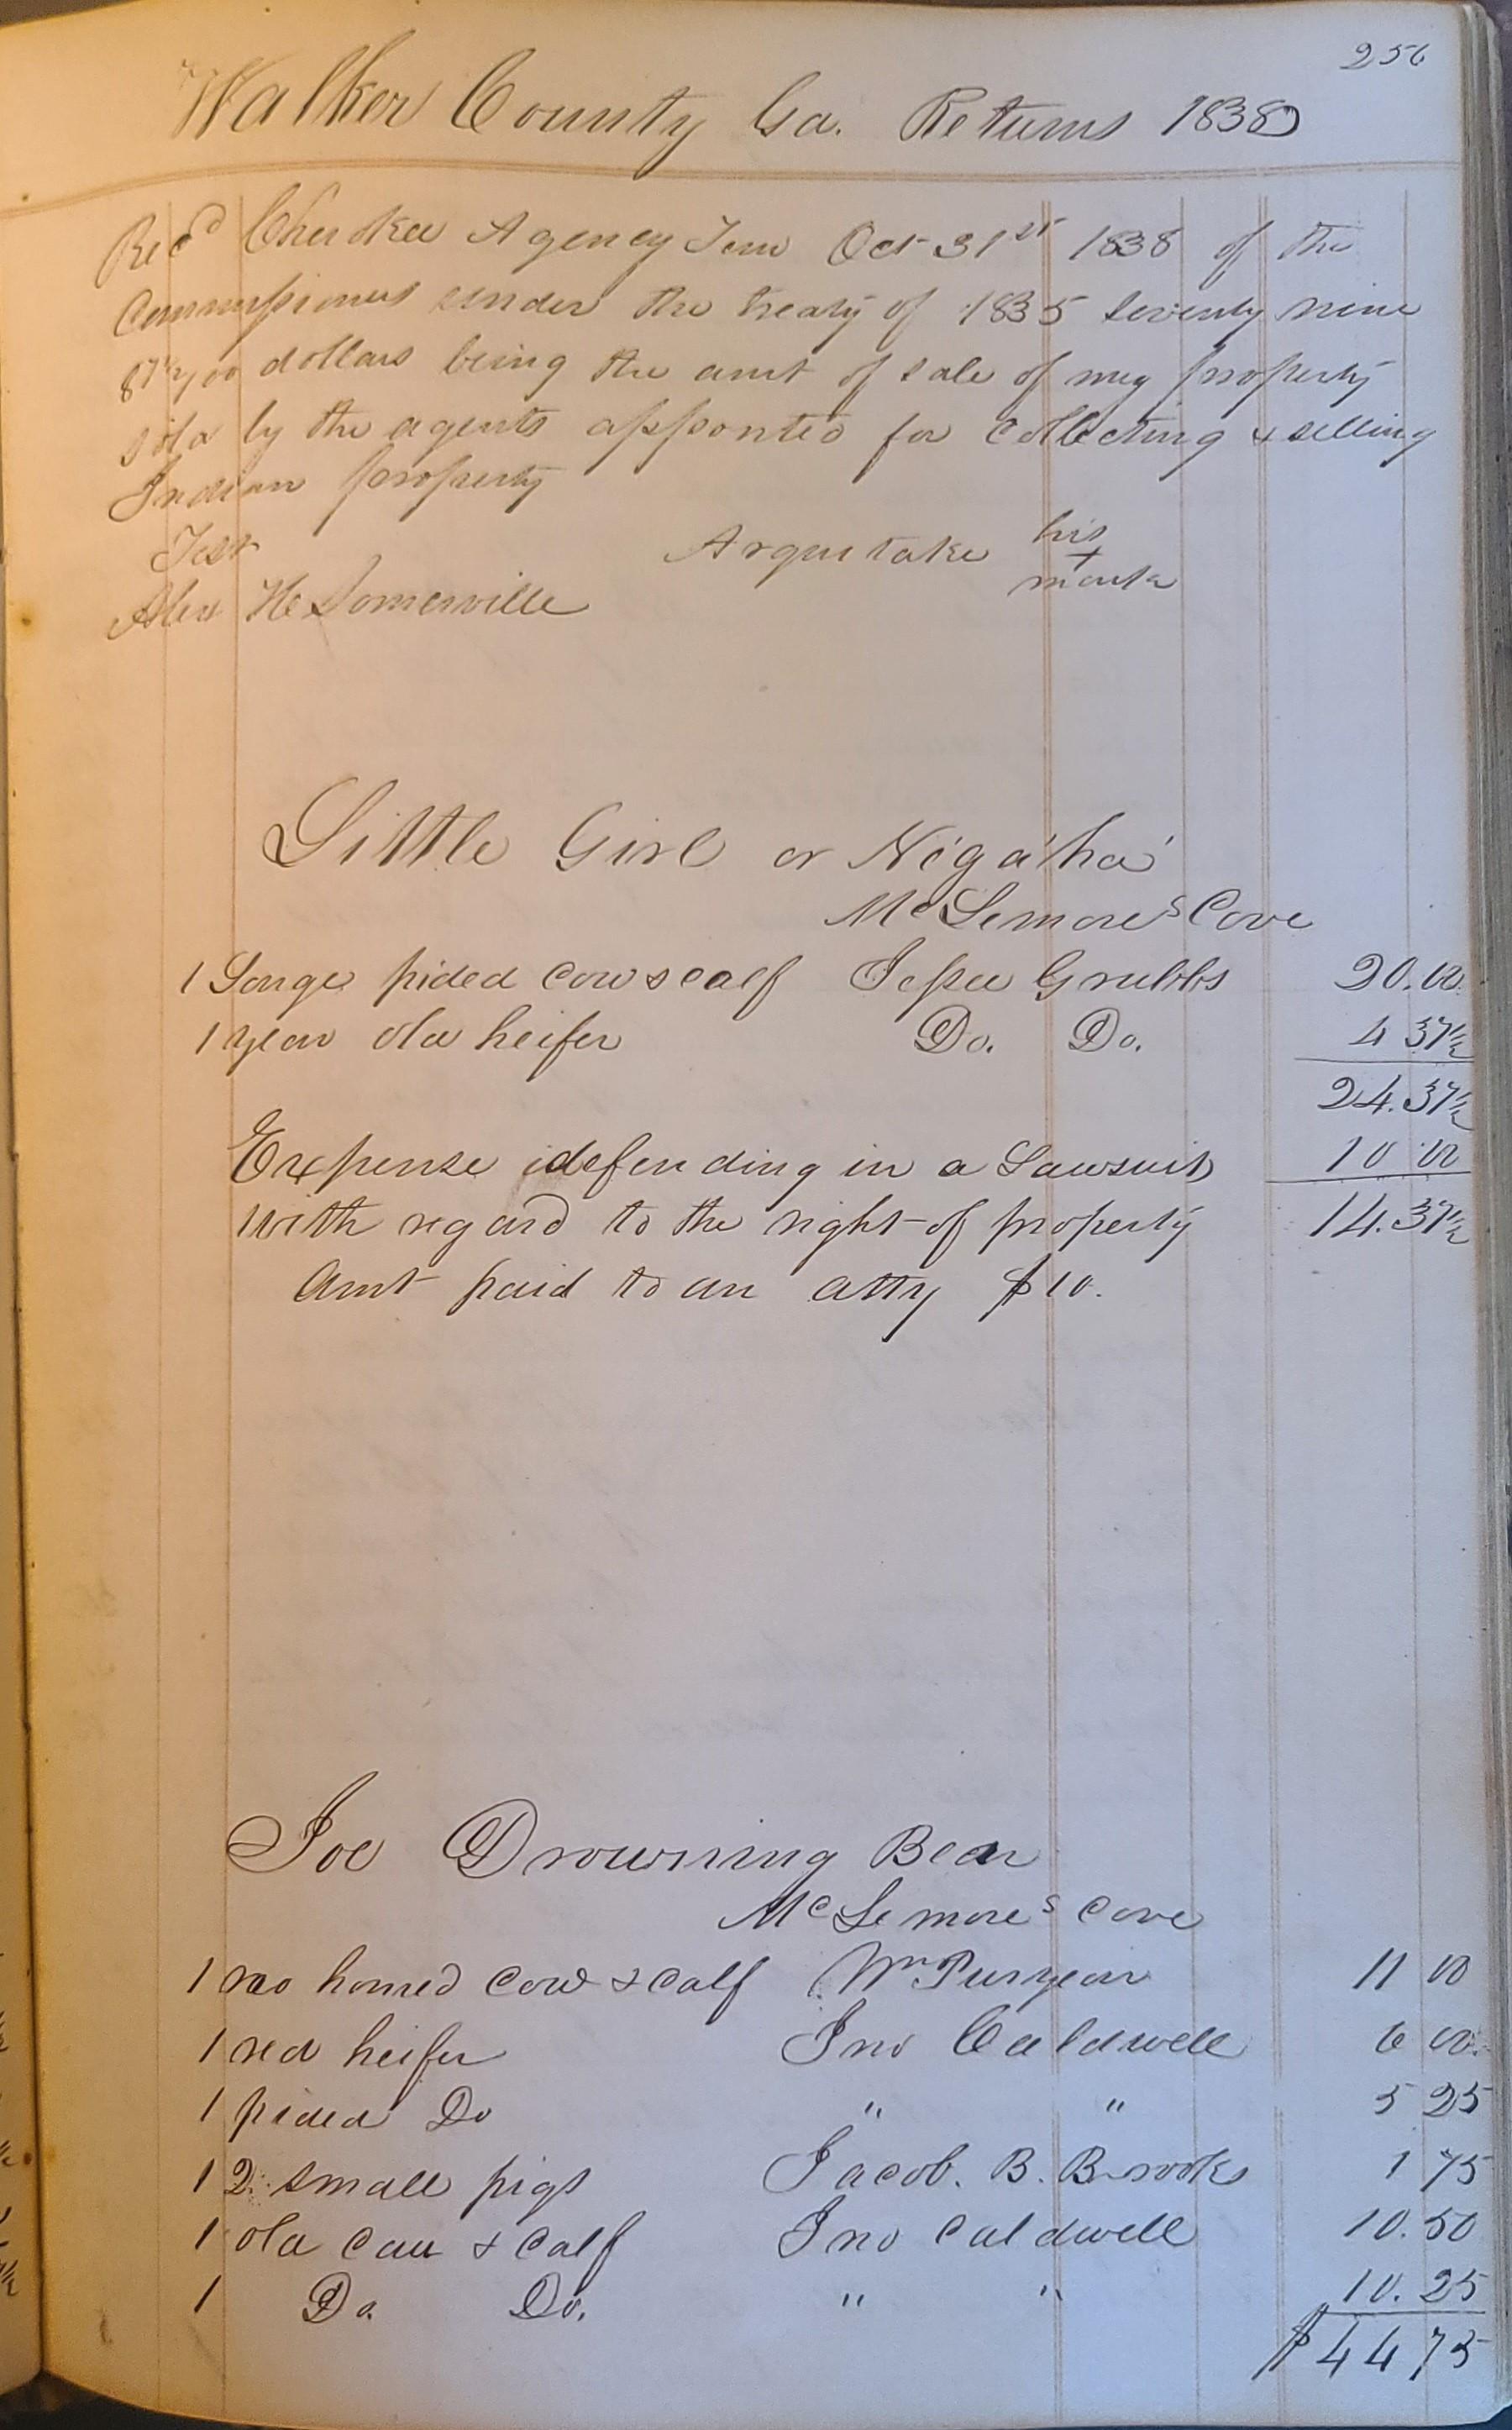 256
Walker County Ga. Returns 1838
Recd Cherokee Agency Tenn Oct 31st 1838 of the
Commissioners under the treaty of 1835 seventy nine
87½/00 dollars being the amt of sale of my property
sold by the agents appointed for Collecting & selling
Indian property
Test Arquutake his
+
mark
Alex H Somerville
Little Girl or Nigatha
McLemores Cove
1 Large pided cow & calf Jesse Grubbs 20.00
1 year old heifer Do. Do. 4 37½
24.37½
Expense defending in a Lawsuit 10 00
with regard to the right of property 14.37½
Amt paid to an atty $10.
Joe Drowning Bear
McLemores Cove
1 no horned cow & calf Wm Puryear 11 00
1 red heifer Jno Caldwell 6 00.
1 pided Do " " 5 25
1 2 small pigs Jacob. B. Brooks 1 75
1 old cow & calf Jno Caldwell 10.50
1 Do. Do. " " 10.25
$44 75